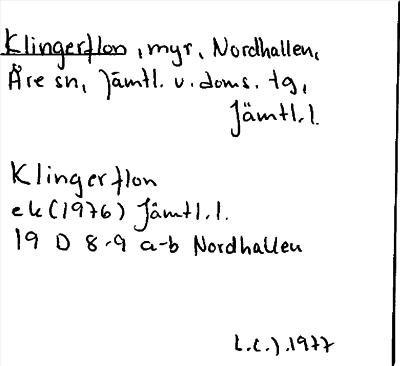 Klingerflon, myr, Nordhallen,
Åre sn, Jämtl. v. doms. tg,
Jämtl.l.
Klingerflon
ek (1976) Jämtl.l.
19 D 8-9 a-b Nordhallen
L.C.J. 1977